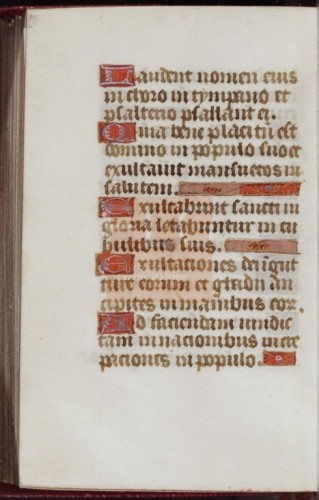 Laudent nomen eius
in choro in tympano et
psalterio psallant ei.
Quia bene placitū est
domino in populo suo et
exultauit mansuetos in
salutem.
Exultabunt sancti in
gloria letabuntur in cu
bilibus suis.
Exultaciones dei i gut
ture eorum et gladii an
cipites in manibus eor.
Ad faciendam uindic
tam in nacionibus incre
paciones in populo.